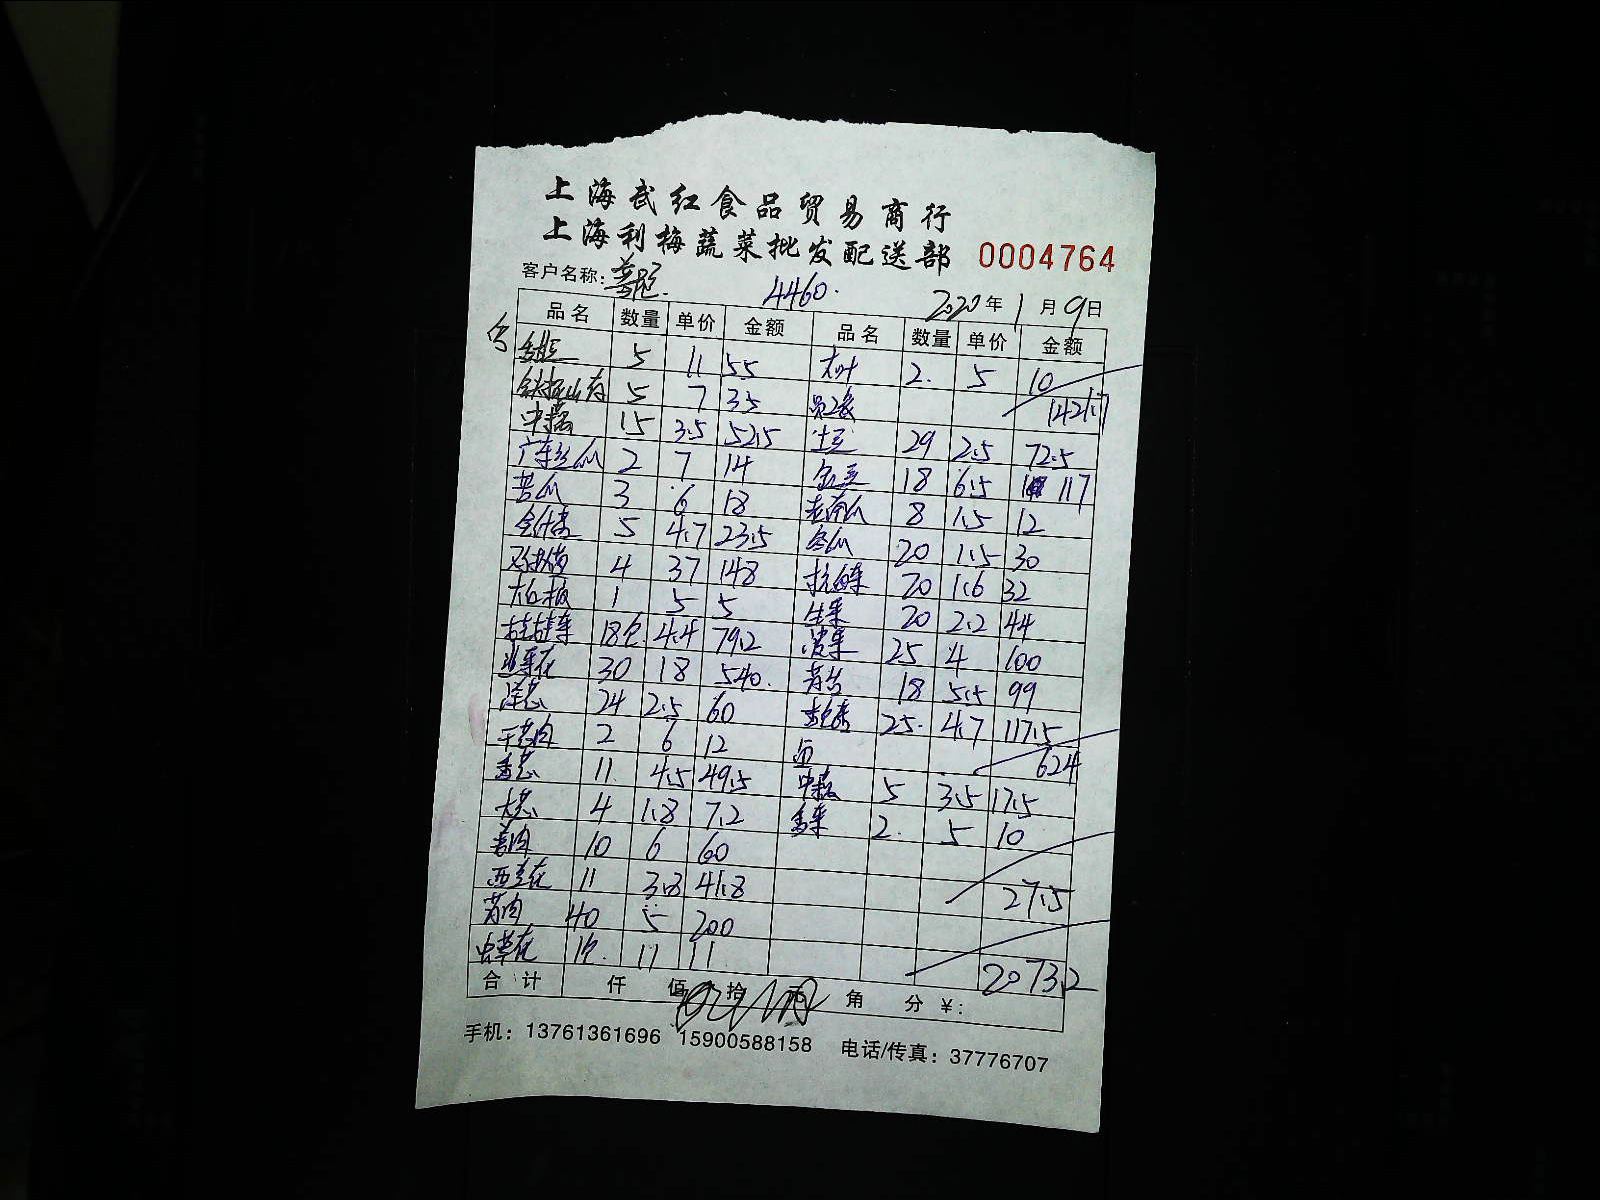 上海武红食品贸易商行
上海利梅蔬菜批发配送部 0004764
客户名称:
4460. 2020年1月9日
品名 数量 单价 金额 品名 数量 单价 金额
5 11 55 大叶 2. 5 10
铁棍山药 5 7 35 1421.7
中藕 15 3.5 52.5 土豆 29 2.5 72.5
广东丝瓜 2 7 14 18 6.5 117
苦瓜 3 6 18 老南瓜 8 1.5 12
5 4.7 23.5 冬瓜 20 1.5 30
4 37 148 20 1.6 32
大红椒 1 5 5 生菜 20 2.2 44
18包 4.4 79.2 菠菜 25 4 100
30 18 540. 18 5.5 99
洋葱 24 2.5 60 25. 4.7 117.5
2 6 12 624
香葱 11. 4.5 49.5 中藕 5 3.5 17.5
大葱 4 1.8 7.2 香菜 2. 5 10
姜肉 10 6 60
西兰花 11 3.8 41.8 27.5
40 5 200
虫草花 1包. 11 11 2073.2
合计 仟 佰 拾 元 角 分 ¥:
手机: 13761361696 15900588158 电话/传真: 37776707